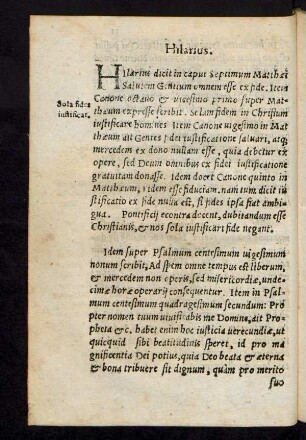 Hilarius.
Hilarius dicit in caput Septimum Matthæi
Salutem Gentium omnem esse ex fide. Item
Canone octauo & vicesimo primo super Mat-
thæum expresse scribit. Solam fidem in Christum
Sola fides
iustificat.
iustificare homines Item Canone uigesimo in Mat
thæum ait Gentes fidei iustificatione saluari, atq;
mercedem ex dono nullam esse, quia debetur ex
opere, sed Deum omnibus ex fidei iustificatione
gratuitam donasse. Idem docet Canone quinto in
Matthæum, fidem esse fiduciam. nam tum dicit iu
stificatio ex fide nulla est, si fides ipsa fiat ambi-
gua. Pontificij econtra docent, dubitandum esse
Christianis, & nos sola iustificari fide negant.
Idem super Psalmum centesimum uigesimum
nonum scribit, Ad spem omne tempus est liberum,
& mercedem non operis, sed misericordiæ, unde-
cimæ horæ operarij consequentur. Item in Psal
mum centesimum quadragesimum secundum: Pro
pter nomen tuum uiuificabis me Domine, ait Pro-
pheta &c. habet enim hoc iusticia uerecundiæ, ut
quicquid sibi beatitudinis speret, id pro ma
gnificentia Dei potius, quia Deo beata & æterna
& bona tribuere sit dignum, quàm pro merito
suo